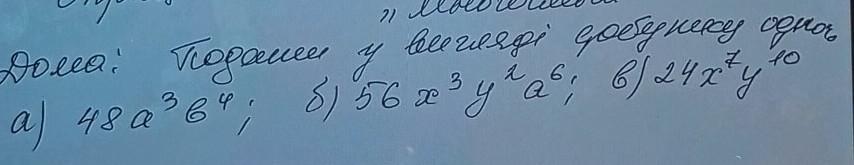 Дома: Подати у вигляді добутку одноч
а) 48a³b⁴; б) 56x³y²a⁶; в) 24x⁷y¹⁰